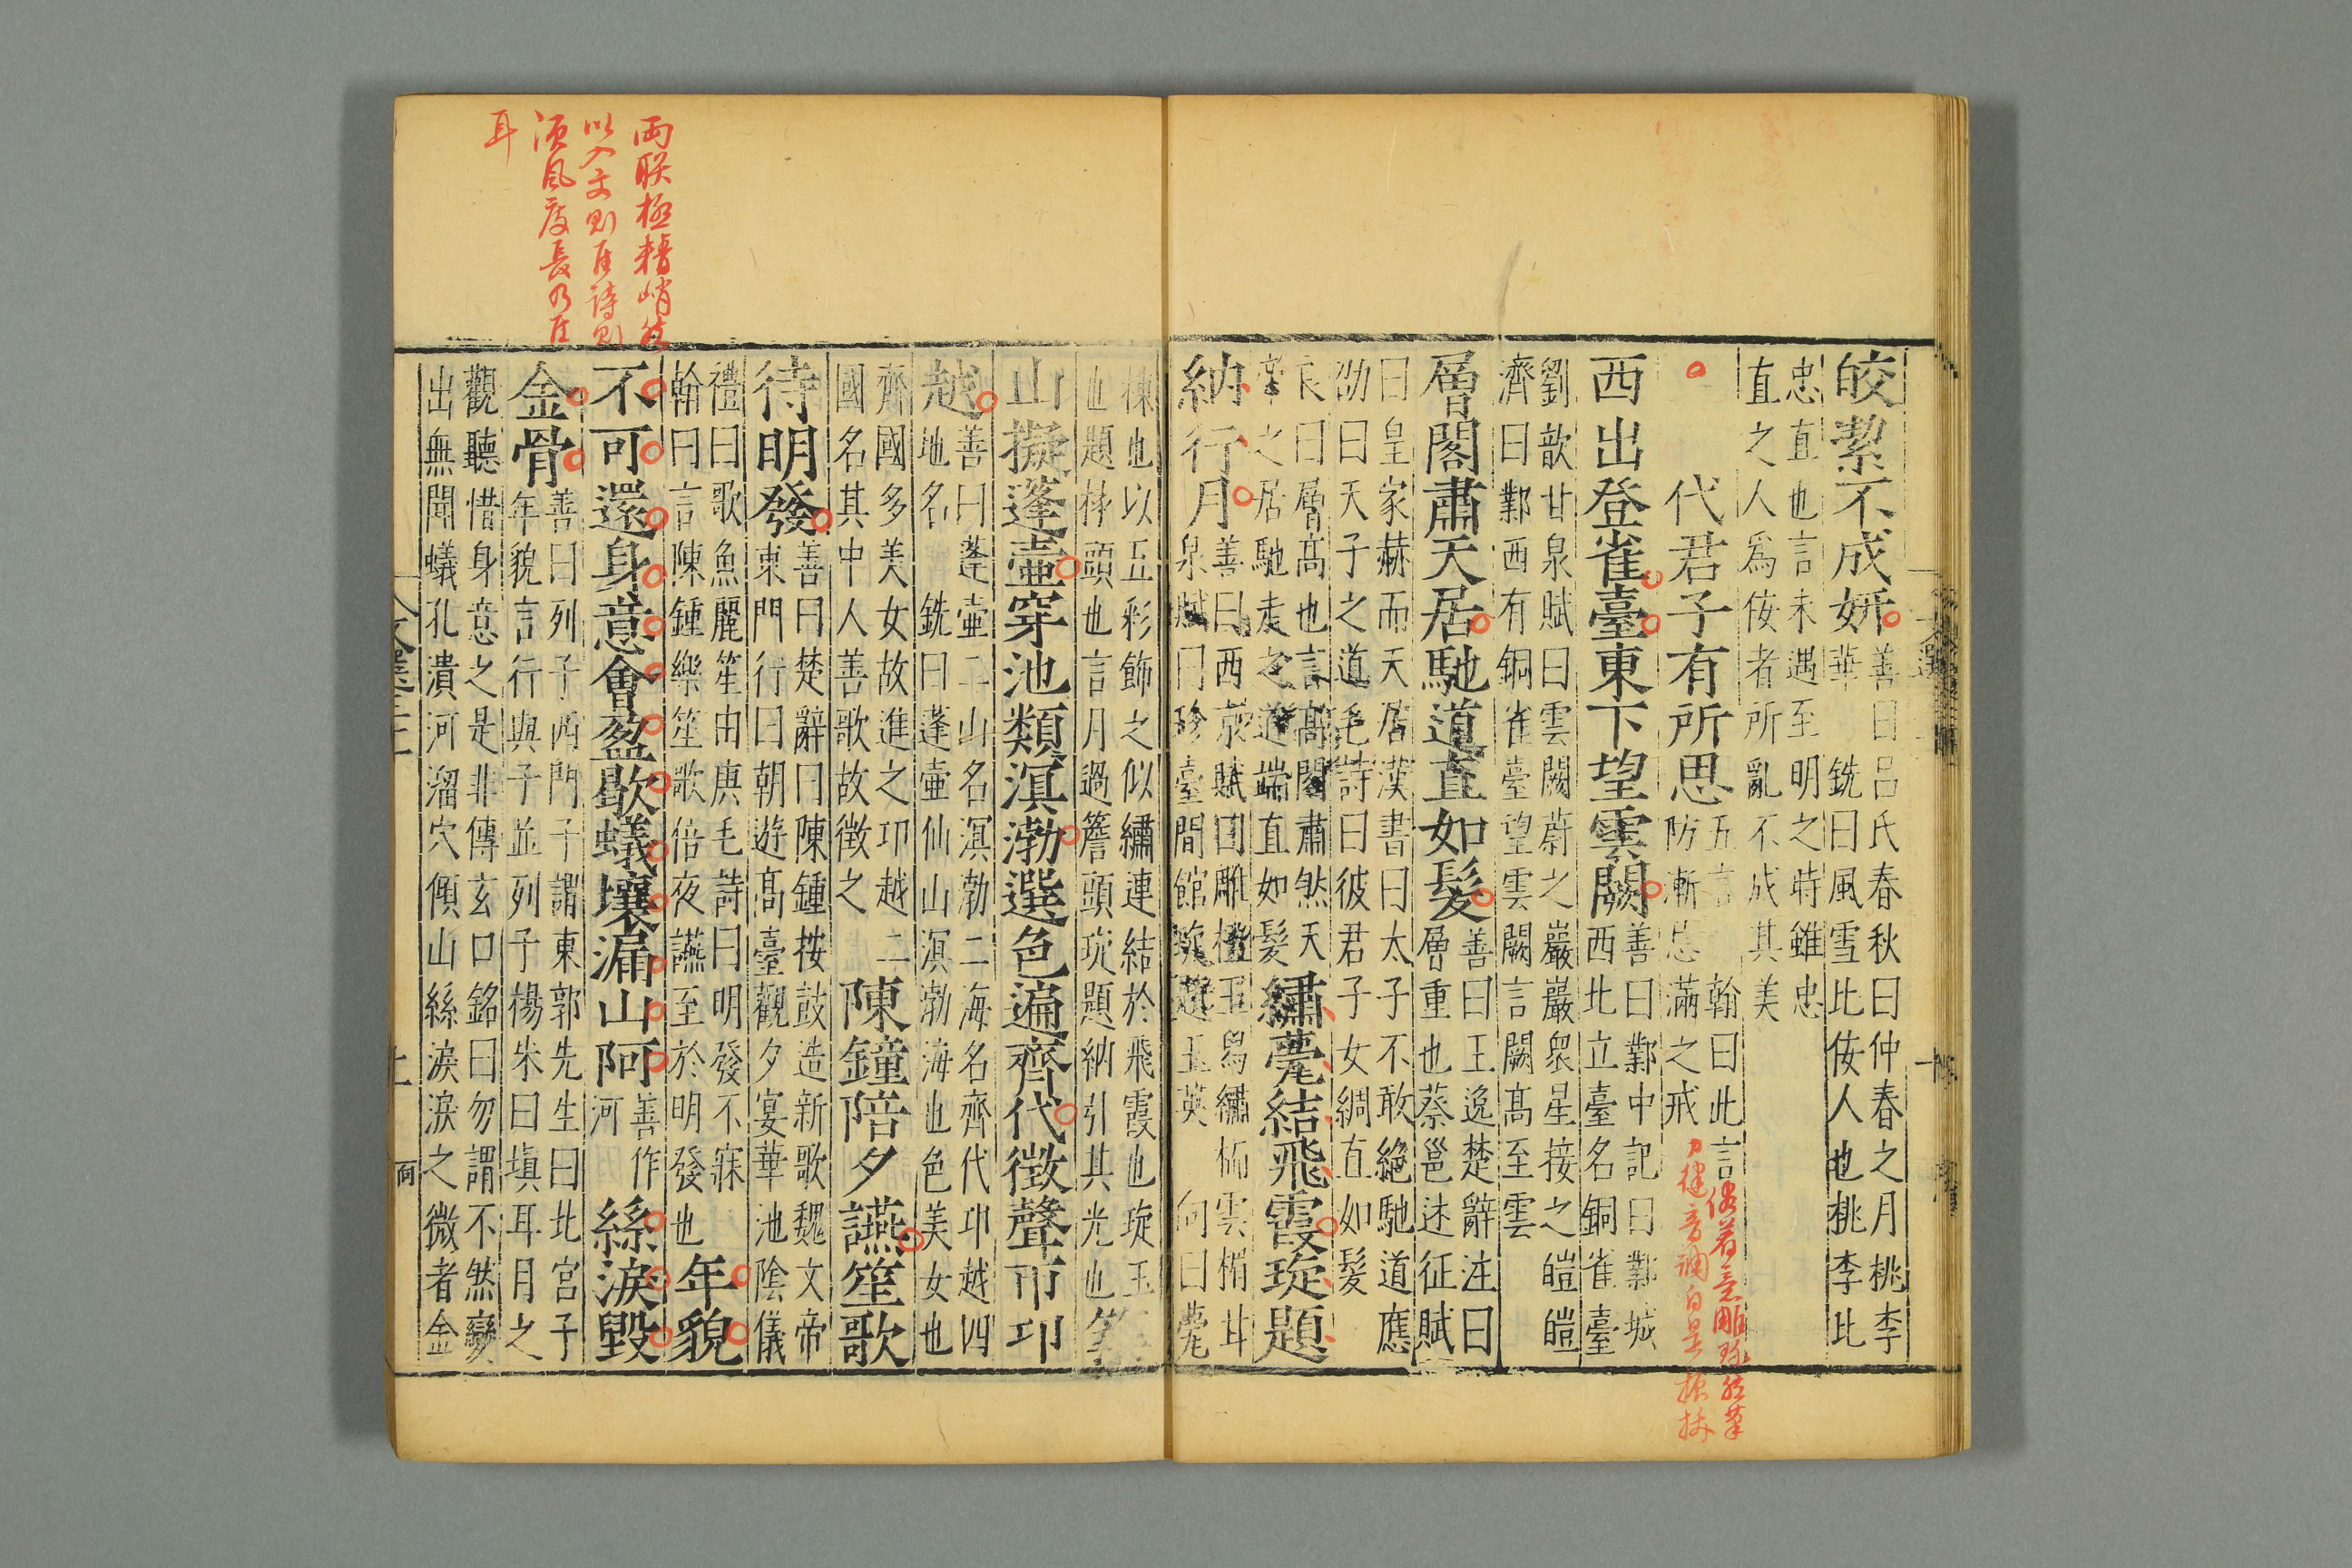 皎絜不成妍善曰呂氏春秋曰仲春之月桃李
華 銑曰風雪比佞人也桃李比
忠直也言未遇至明之時雖忠
直之人爲佞者所亂不成其美
代君子有所思五言 翰曰此言
防漸忌滿之戒
偶着意雕琢然筆
力健音調自是振拔
西出登雀臺東下望雲闕善曰鄴中記曰鄴城
西北立臺名銅雀臺
劉歆甘泉賦曰雲闕蔚之巖巖衆星接之皚皚
濟曰鄴西有銅雀臺望雲闕言闕髙至雲
層閣肅天居馳道直如髮善曰王逸楚辭注曰
層重也蔡邕述征賦
曰皇家赫而天居漢書曰太子不敢絶馳道應
劭曰天子之道毛詩曰彼君子女綢直如髮
良曰層髙也言髙閣肅然天
帝之居馳走之道端直如髮
繡甍結飛霞琁題
納行月善曰西京賦曰雕楹玉舄繡栭雲楣甘
泉賦曰珍臺閒館琁題玉英 向曰甍
棟也以五彩飾之似繡連結於飛霞也琁玉
也題椽頭也言月過簷頭琁題納引其光也築
山擬蓬壷穿池類溟渤選色遍齊代徵聲帀卭
越善曰蓬壷二山名溟渤二海名齊代卭越四
地名 銑曰蓬壷仙山溟渤海也色美女也
齊國多美女故進之卭越二
國名其中人善歌故徵之
陳鐘陪夕讌笙歌
待明發善曰楚辭曰陳鍾按鼓造新歌魏文帝
東門行曰朝遊髙臺觀夕宴華池陰儀
禮曰歌魚麗笙由庚毛詩曰明發不寐
翰曰言陳鍾樂笙歌倍夜讌至於明發也
年貌
不可還身意會盈歇蟻壤漏山阿善作
河
絲淚毀
金骨善曰列子西門子謂東郭先生曰北宮子
年貌言行與子並列子楊朱曰塡耳目之
觀聽惜身意之是非傳玄口銘曰勿謂不然變
出無閒蟻孔潰河溜穴傾山絲淚淚之微者金
兩联極精峭然
以入文則佳詩則
須風度長乃佳
耳